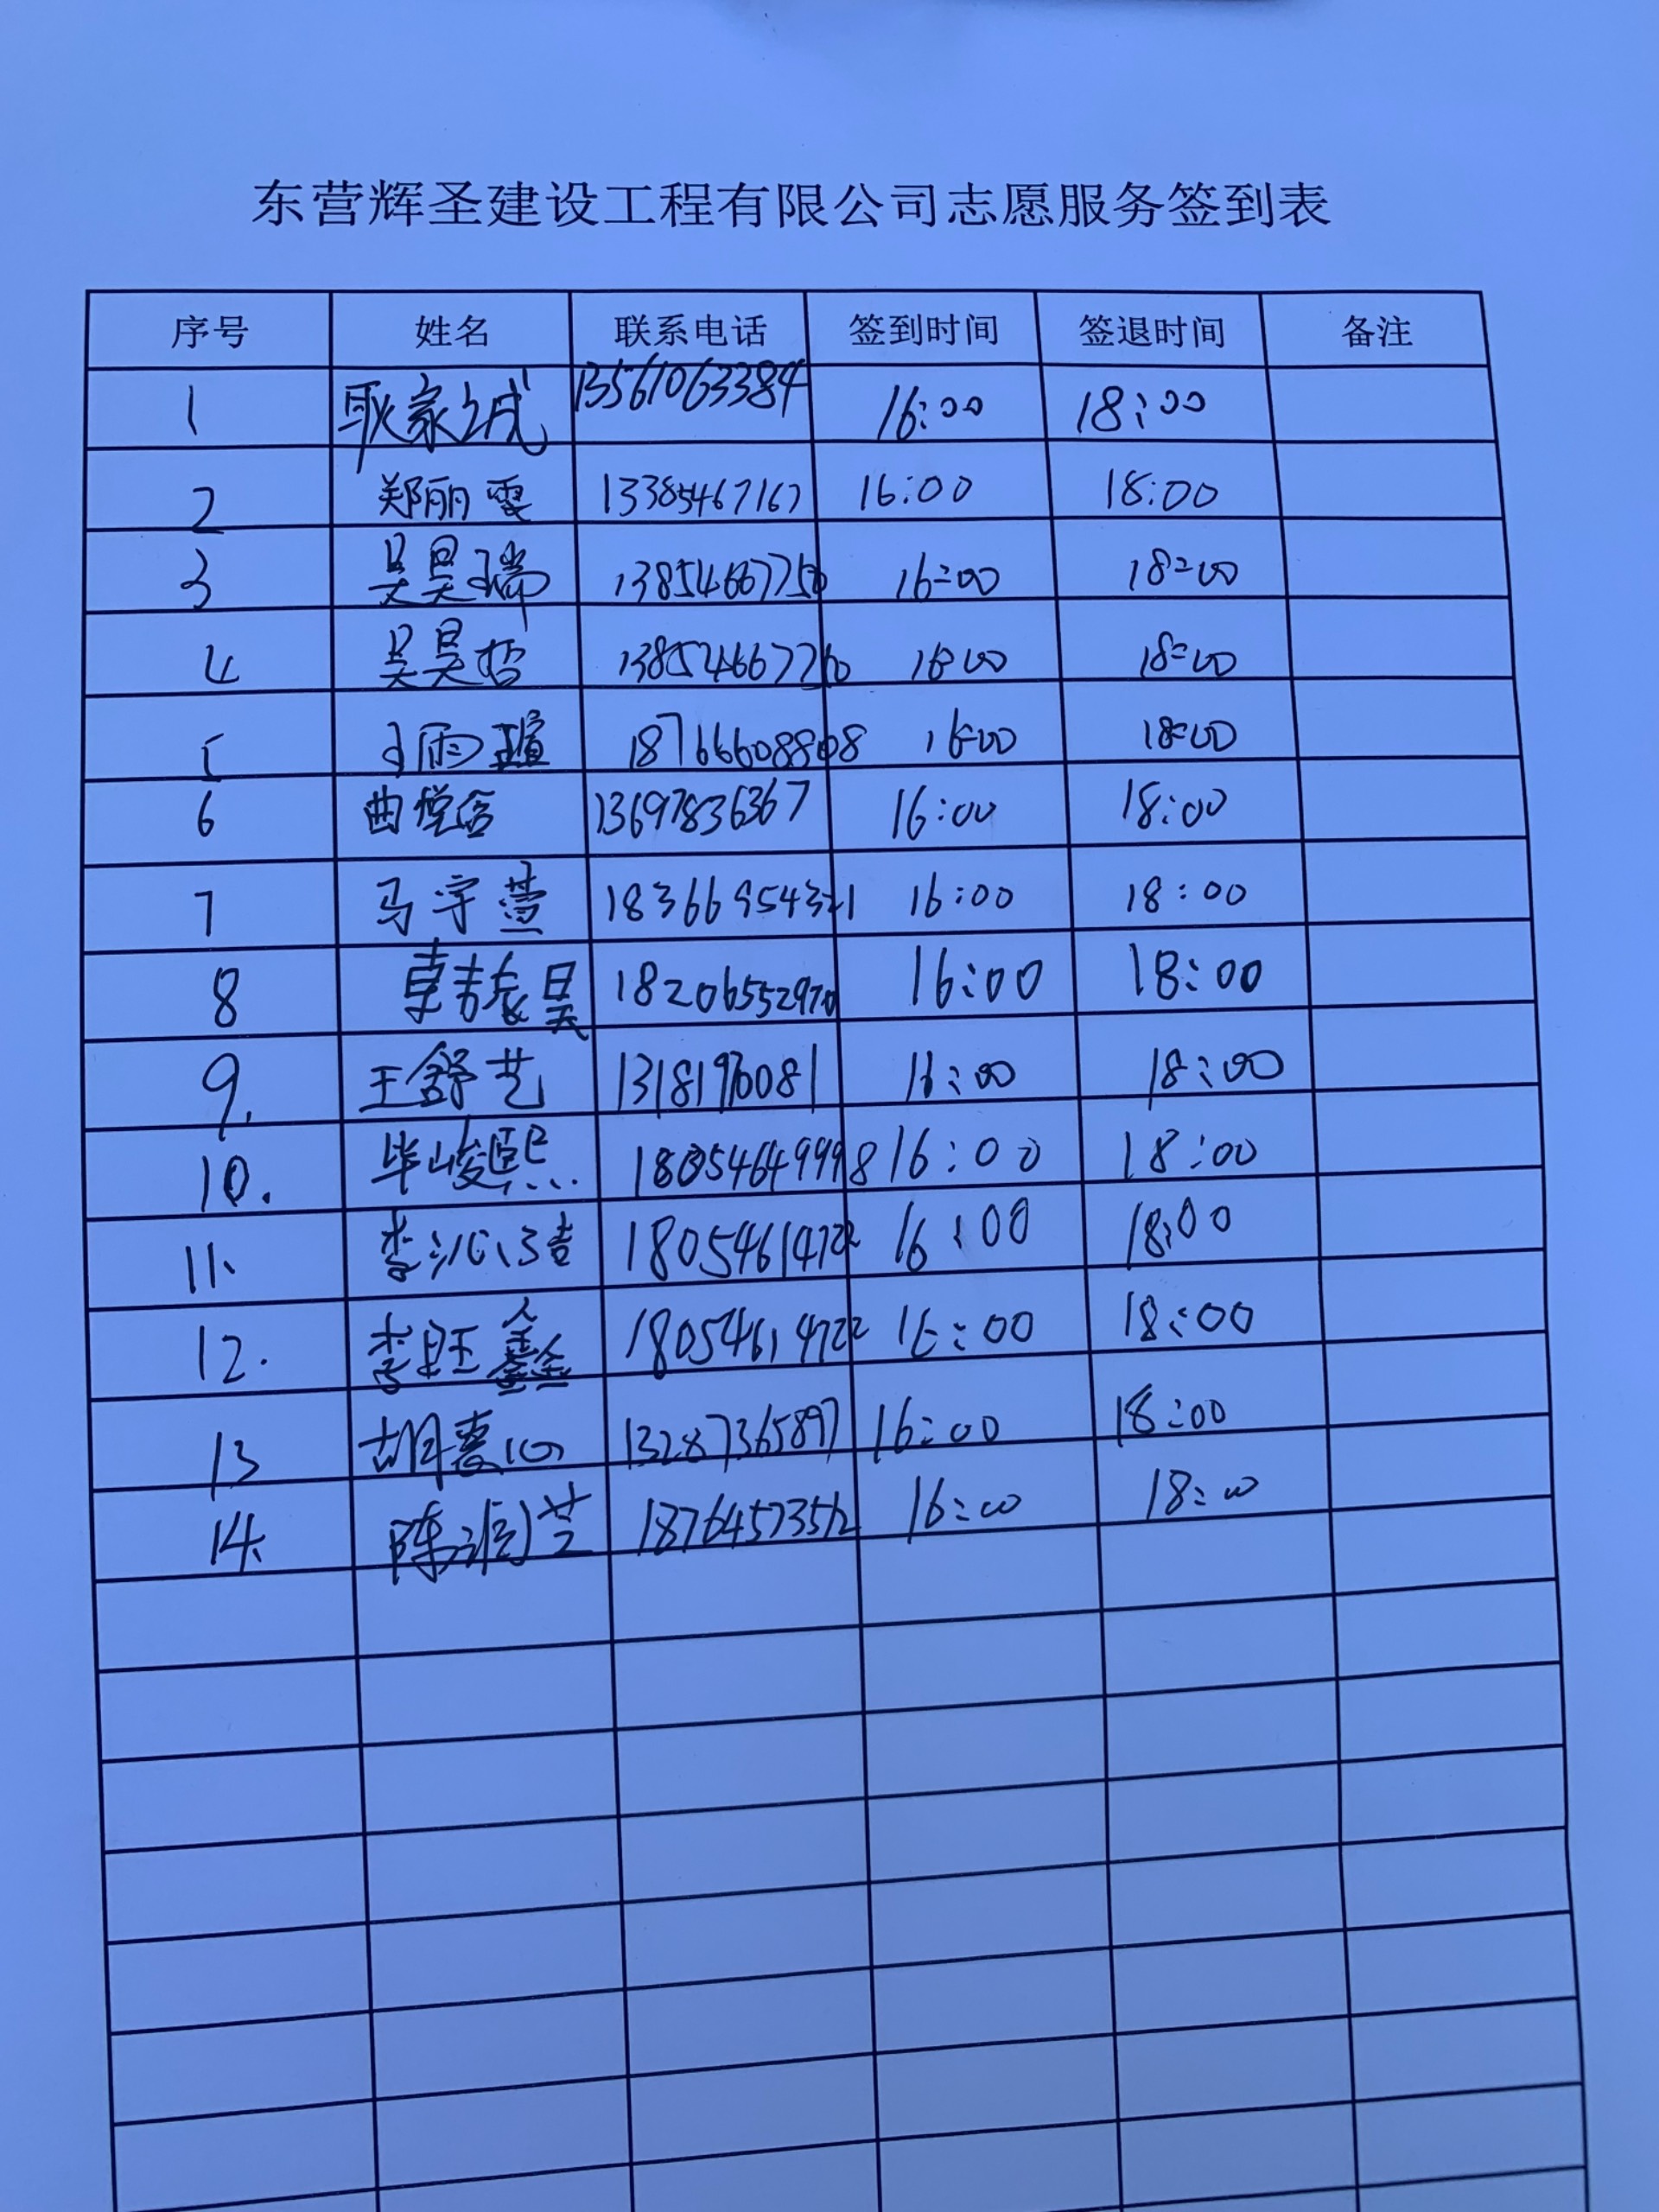 东营辉圣建设工程有限公司志愿服务签到表
序号 姓名 联系电话 签到时间 签退时间 备注
1 耿家诚 13561063384 16:00 18:00
2 郑丽雯 13385467167 16:00 18:00
3 吴昊瑞 13854667750 16:00 18:00
4 吴昊哲 13854667760 16:00 18:00
5 王雨瑄 18766608808 16:00 18:00
6 曲悦含 13697836367 16:00 18:00
7 马宇萱 18366954321 16:00 18:00
8 18206552970 16:00 18:00
9. 王舒艺 1318196081 16:00 18:00
10. 毕峻熙 18054649998 16:00 18:00
11、 李沁洁 18054614722 16:00 18:00
12. 李旺鑫 18054614722 16:00 18:00
13 胡嘉心 13287365897 16:00 18:00
14、 陈润芝 18764573512 16:00 18:00